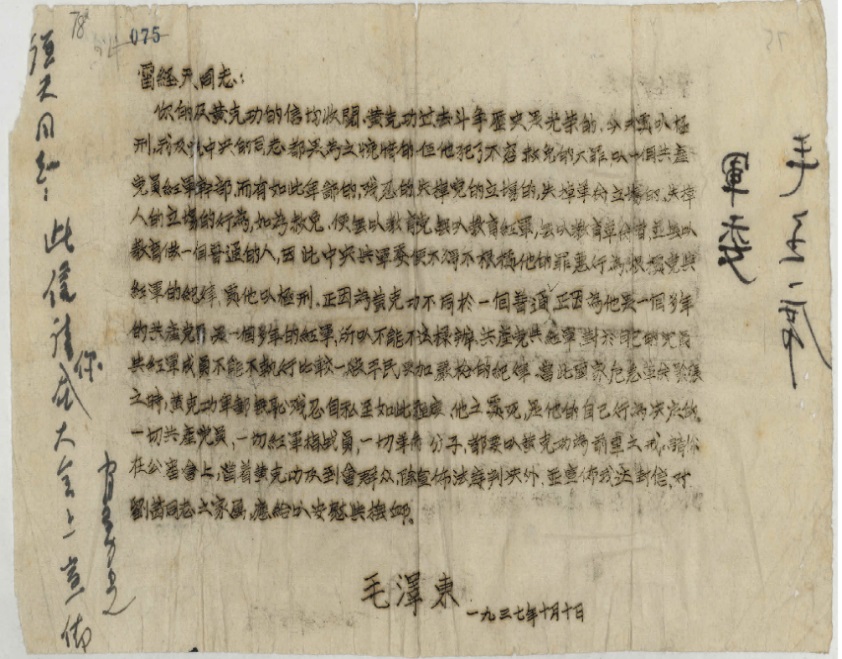 075
雷經天同志：
你的及黃克功的信均收閱。黃克功过去斗争歷史是光荣的，今天處以極
刑，我及党中央的同志都是為之惋惜的。但他犯了不容赦免的大罪，以一個共產
党員紅軍幹部，而有如此卑鄙的，残忍的，失掉党的立場的，失掉革命立場的，失掉
人的立場的行為，如為赦免，便無以教育党，無以教育紅軍，無以教育革命者，並無以
教育做一個普通的人，因此中央與軍委便不得不根據他的罪惡行為，根據党與
紅軍的紀律，處他以極刑。正因為黃克功不同於一個普通，正因為他是一個多年
的共產党員，是一個多年的紅軍，所以不能不这樣辦。共產党與紅軍，對於自己的党員
與紅軍成員不能不執行比較一般平民更加嚴格的紀律。當此國家危急革命緊張
之時，黃克功卑鄙無恥残忍自私至如此程度，他之處死，是他的自己行為決定的。
一切共產党員，一切紅軍指战員，一切革命分子，都要以黃克功為前車之戒。請你
在公審會上，當着黃克功及到會群众，除宣佈法庭判决外，並宣佈我这封信。对
劉茜同志之家屬，應給以安慰與撫卹。
毛澤東
一九三七年十月十日
軍委
經天同志：此信請你在大會上宣佈